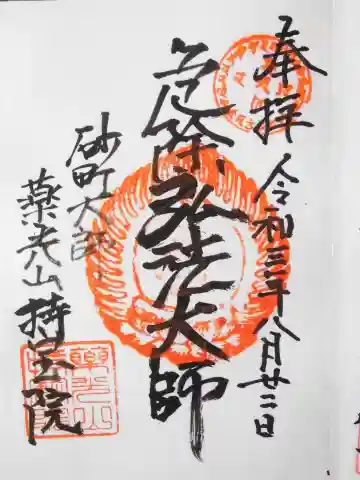 奉拝 令和三年八月廿二日
厄除弘法大師
砂町大師
薬光山持宝院